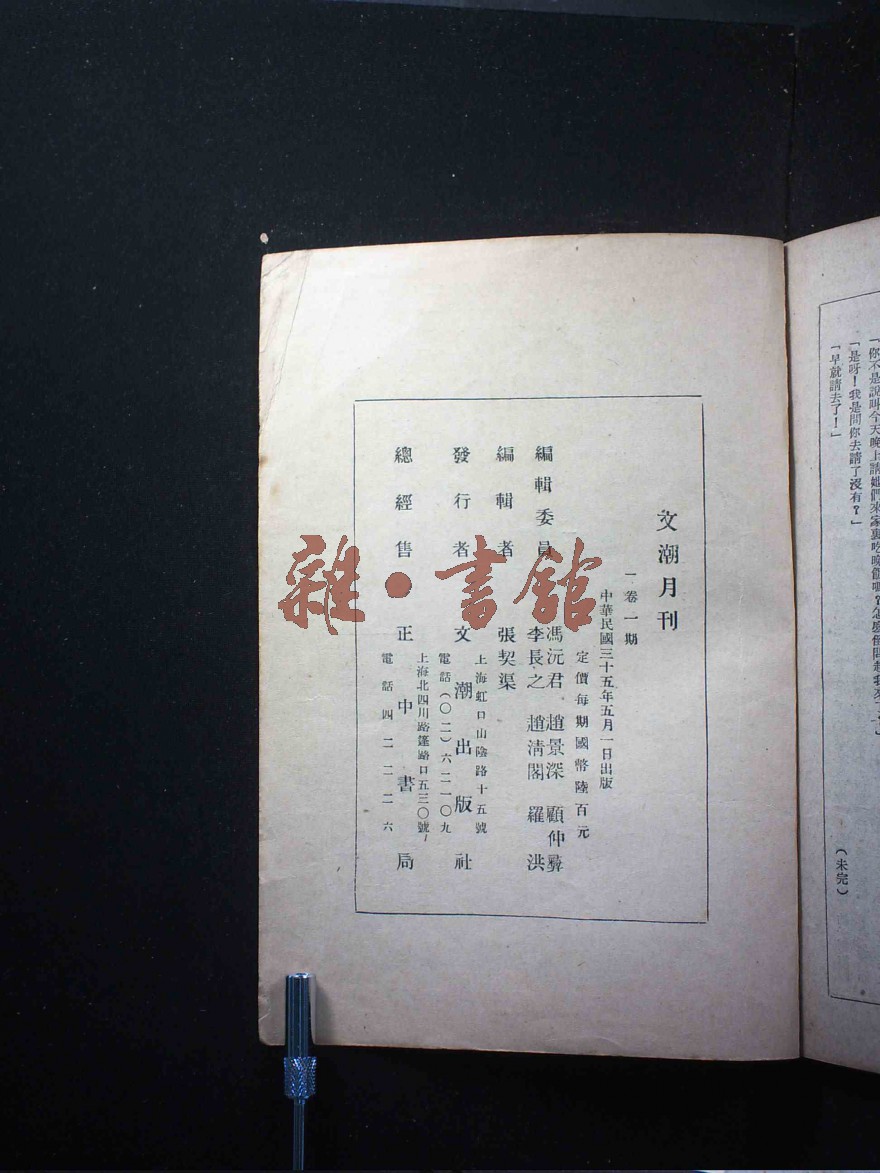 「你不是說叫今天晚上請她們來家裏吃晚飯嗎？怎麼倒問起我來
「是呀！我是問你去請了沒有？」
「早就請去了！」
（未完）
文潮月刊
一卷一期
中華民國三十五年五月一日出版
定價每期國幣陸百元
編輯委員
馮沅君 趙景深 顧仲彝
李長之 趙清閣 羅洪
編輯者 張契渠
上海虹口山陰路十五號
發行者 文潮出版社
電話（〇二）六二一〇九
上海北四川路蓬路口五三〇號
總經售 正中書局
電話四二二二六
雜·書館